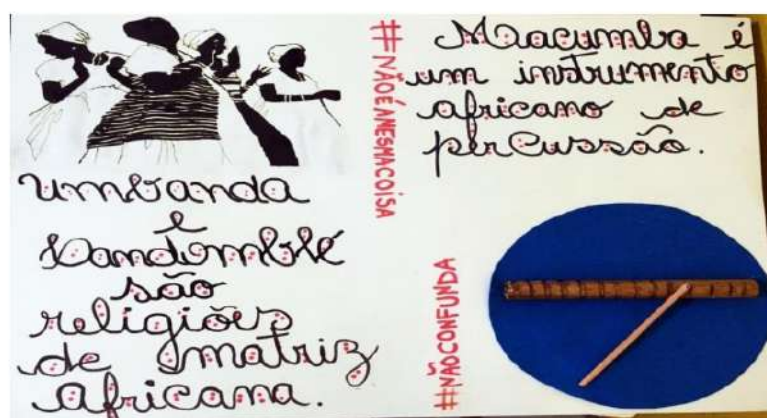 Umbanda
e
Candomblé
são
religiões
de matriz
africana.
#NÃOÉAMESMACOISA
Macumba é
um instrumento
africano de
percussão.
#NÃOCONFUNDA